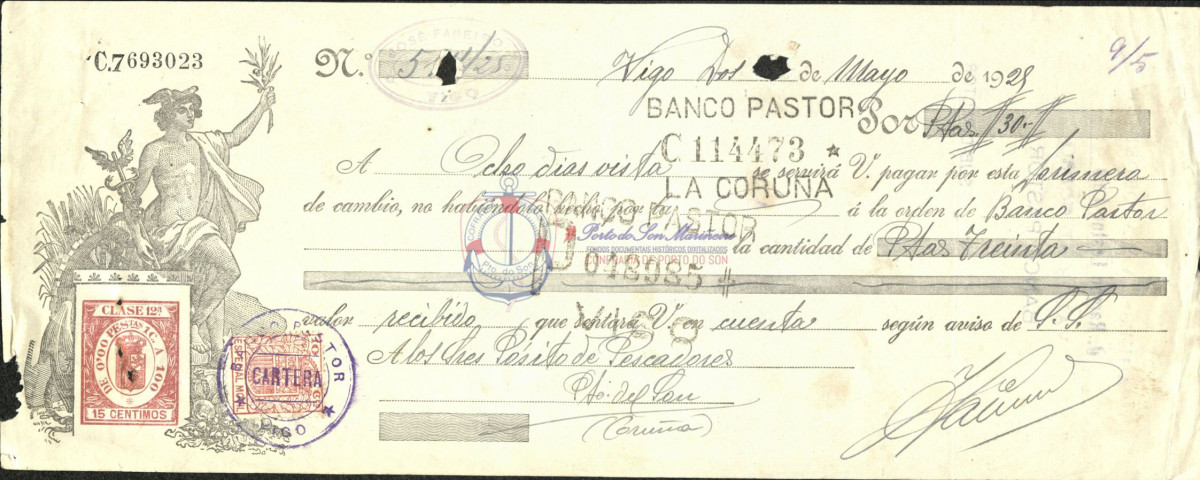 C.7693023
N.º
JOSÉ
VIGO
Vigo Dos de Mayo de 1928
9/5
BANCO PASTOR
Por Ptas // 30.- //
C 114473 *
A Ocho dias vista se servirá V. pagar por esta primera
LA CORUÑA
de cambio, no habiéndolo hecho por la á la orden de Banco Pastor
BANCO PASTOR
Porto do Son Mariñeiro
FONDOS DOCUMENTAIS HISTÓRICOS DIGITALIZADOS
CONFRARÍA DE PORTO DO SON
Pto. do Son
la cantidad de Ptas Treinta
D 048985 #
VIGO
valor recibido que sentará V. en cuenta según aviso de S.S.
A los Sres Pósito de Pescadores
Pto. del Son
(Coruña)
CLASE 12ª
DE 0'00 PESTAS 1 C. A 100
15 CENTIMOS
PASTOR
CARTERA
ESPECIAL MOVIL
VIGO